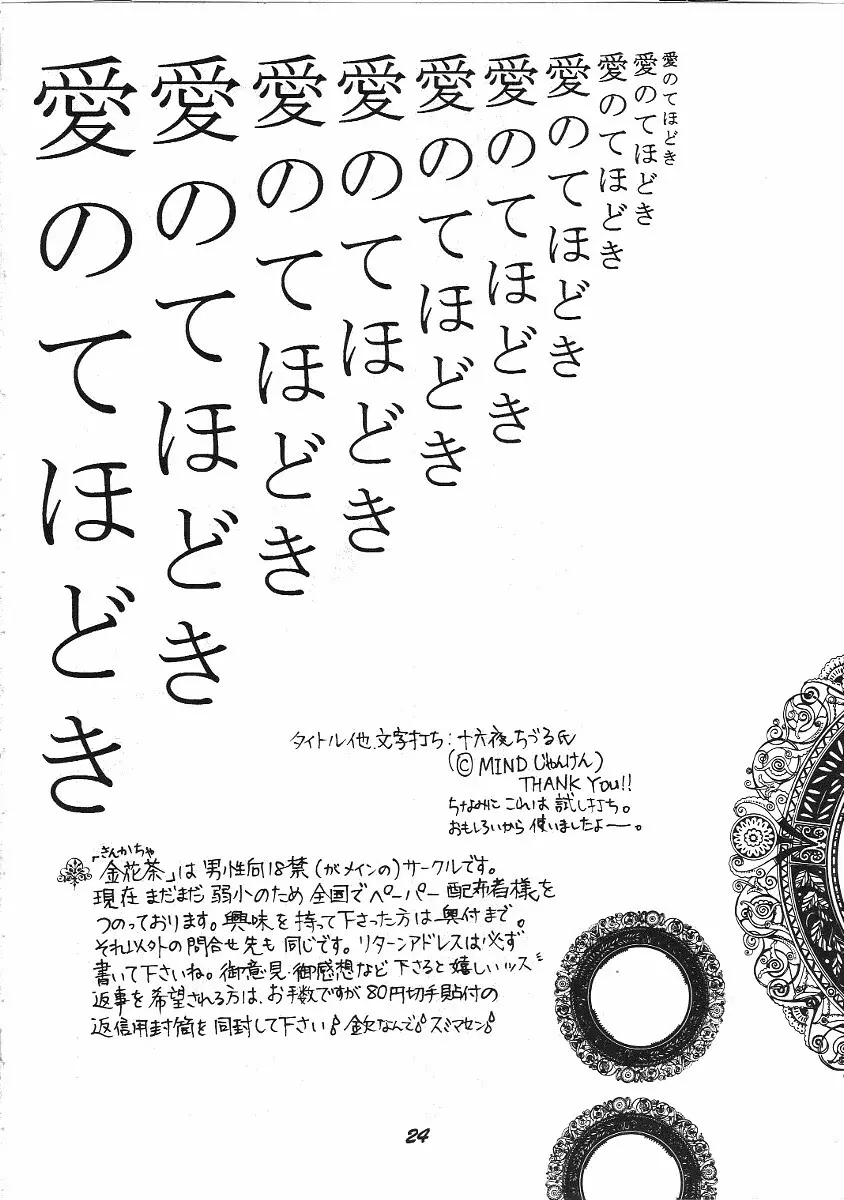 愛のてほどき
愛のてほどき
愛のてほどき
愛のてほどき
愛のてほどき
愛のてほどき
愛のてほどき
愛のてほどき
愛のてほどき
愛のてほどき
タイトル他、文字打ち:十六夜ちづる氏
(©MINDじゃんけん)
THANK YOU!!
ちなみに これは 試し打ち。
おもしろいから 使いましたよー。
きんかちゃ
「金花茶」は 男性向18禁(がメインの)サークルです。
現在 まだまだ 弱小のため 全国でペーパー 配布者様を
つのっております。興味を持って下さった方は奥付まで。
それ以外の問合せ先も 同じです。リターンアドレスは必ず
書いて下さいね。御意見・御感想など下さると嬉しいッス
返事を希望される方は、お手数ですが80円切手貼付の
返信用封筒を同封して下さい♪金欠なんで♪スミマセン♪
24